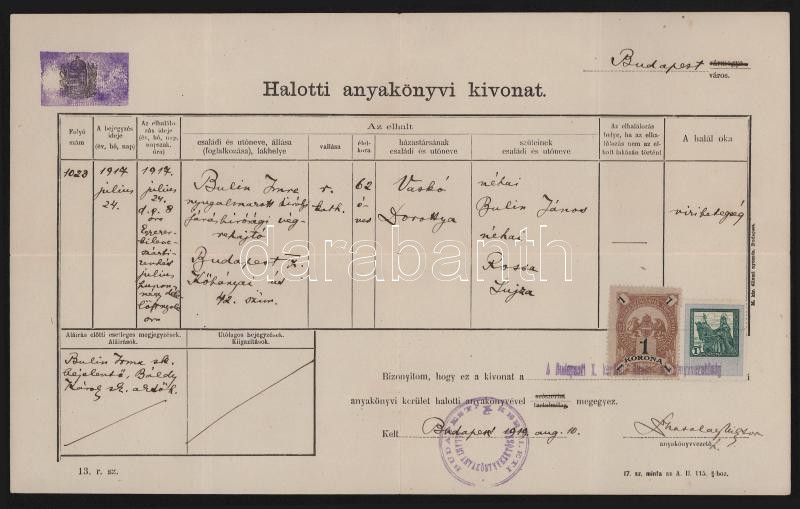 Budapest vármegye
város.
Halotti anyakönyvi kivonat.
Folyó szám
A bejegyzés ideje (év, hó, nap)
Az elhalálozás ideje (év, hó, nap, napszak, óra)
Az elhalt
családi és utóneve, állása (foglalkozása), lakhelye
vallása
életkora
házastársának családi és utóneve
szüleinek családi és utóneve
Az elhalálozás helye, ha az elhalálozás nem az elhalt lakásán történt
A halál oka
1023
1917 július 24.
1917. július 24. d. e. 8 óra
Ezerkilencszáztizenhét július huszonnegy
Bulin Imre
nyugalmazott királyi
járásbirósági végrehajtó
Budapest X.
Kőbányai út
42. szám.
r. kath.
62 éves
Vaskó
Dorottya
néhai
Bulin János
néhai
Rossa
Lujza
szívbetegség
M. kir. állami nyomda. Budapest.
darabanth
Aláírás előtti esetleges megjegyzések.
Aláírások.
Utólagos bejegyzések.
Kiigazítások.
Bulin Irma sk.
bejelentő, Báldy
Károly sk. a
1 1
1
KORONA
1
KORONA
Bizonyítom, hogy ez a kivonat a A Budapesti X. i
anyakönyvi kerület halotti anyakönyvével szószerint
tartalmilag megegyez.
Kelt Budapest 1919. aug. 10.
BUDAPESTI X. KERÜLETI
ÁLLAMI ANYAKÖNYVVEZETŐSÉG
anyakönyvvezető
13. r. sz.
17. sz. minta az A. U. 115. §-hoz.